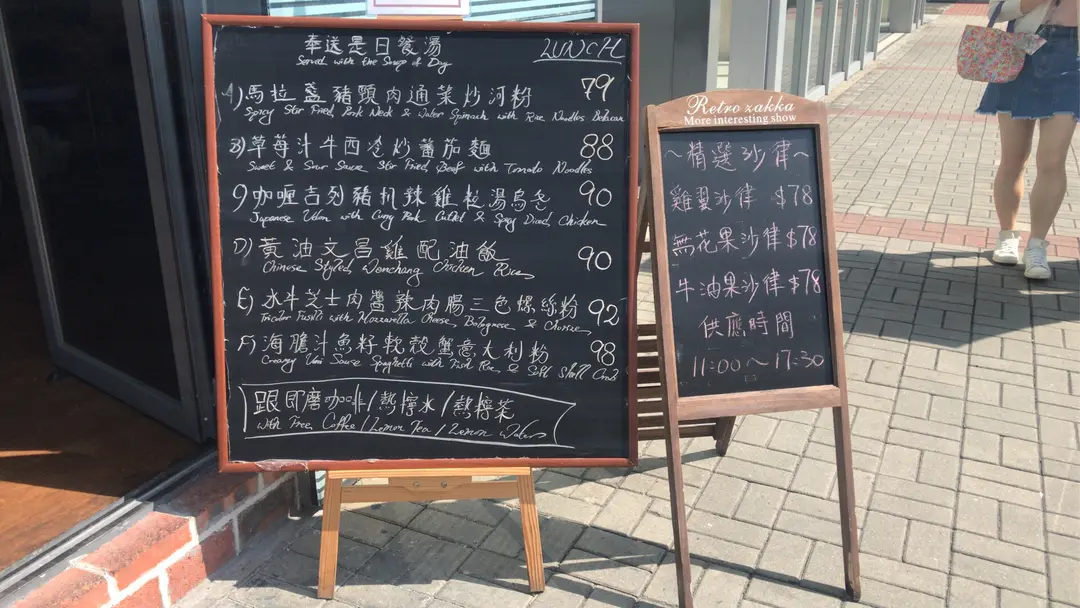 奉送是日餐湯 LUNCH
Served with the Soup of Day
A) 馬拉盞豬頸肉通菜炒河粉 79
Spicy Stir Fried Pork Neck & Water Spinach with Rice Noodles
B) 草莓汁牛西冷炒蕃茄麵 88
Sweet & Sour Sauce Stir Fried Beef with Tomato Noodles
C) 咖喱吉列豬扒辣雞粒湯烏冬 90
Japanese Udon with Curry Pork Cutlet & Spicy Diced Chicken
D) 黃油文昌雞配油飯 90
Chinese Styled Wenchang Chicken Rice
E) 水牛芝士肉醬辣肉腸三色螺絲粉 92
Tricolor Fusilli with Mozzarella Cheese, Bolognese & Chorizo
F) 海膽汁魚籽軟殼蟹意大利粉 98
Creamy Uni Sauce Spaghetti with Fish Roe & Soft Shell Crab
跟即磨咖啡/熱檸水/熱檸茶
with Free Coffee / Lemon Tea / Lemon Water
Retro zakka
More interesting show
~精選沙律~
雞翼沙律 $78
無花果沙律 $78
牛油果沙律 $78
供應時間
11:00~17:30